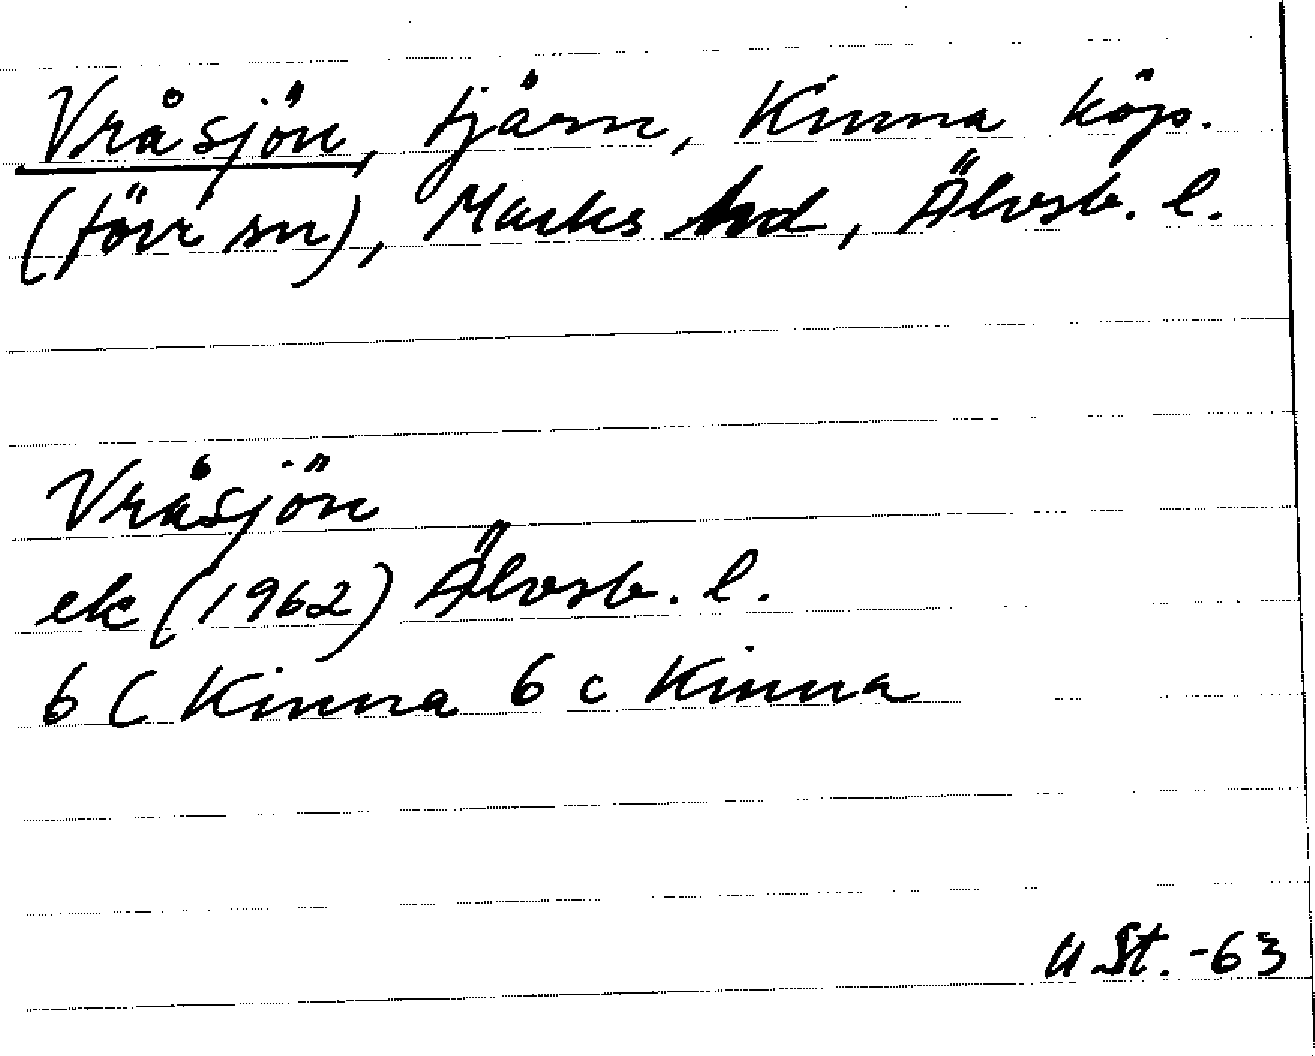 Vråsjön, tjärn, Kinna köp.
(förr sn), Marks hd, Älvsb. l.
Vråsjön
ek (1962) Älvsb. l.
6 C Kinna 6 c Kinna
U.St. -63